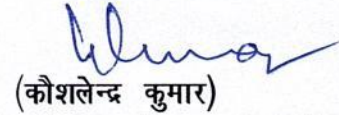 (कौशलेन्द्र कुमार)